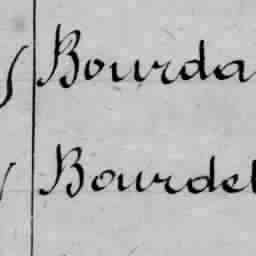 Bourda
Bourdel